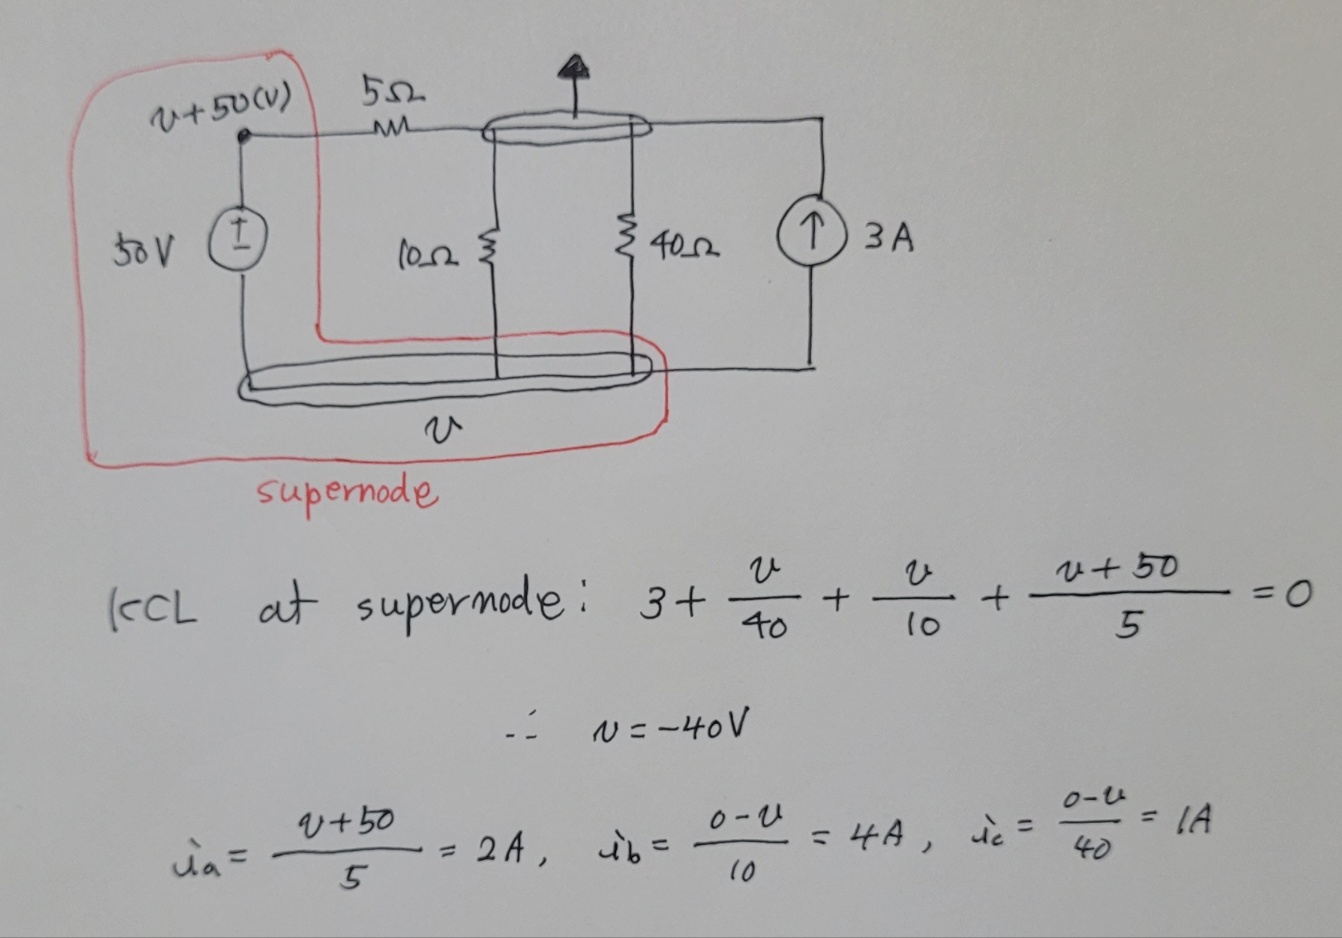 v+50(V)
5Ω
50V
10Ω
40Ω
3A
v
supernode
KCL at supernode: 3 + v/40 + v/10 + (v+50)/5 = 0
∴ v = -40V
ia = (v+50)/5 = 2A, ib = (0-v)/10 = 4A, ic = (0-v)/40 = 1A